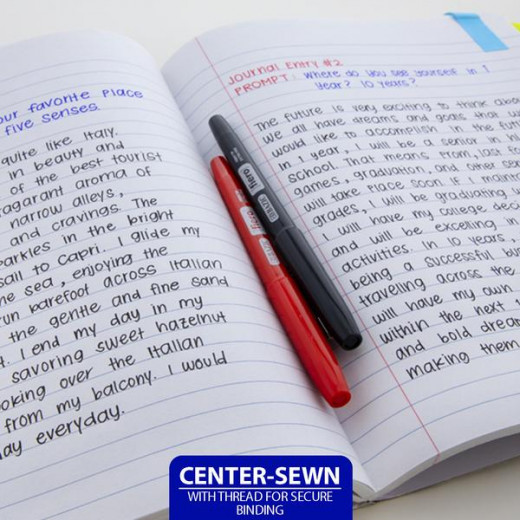 our favorite place
five senses.
quite like Italy.
in beauty and
of the best tourist
fragarant aroma of
narrow alleys,
and cravings. The
parkles in the bright
sail to Capri. I glide my
ne sea, enjoying the
run barefoot across Italian
the gentle and fine sand
I end my day in my
savoring sweet hazelnut
oking over the Italian
from my balcony. I would
ay everyday.
Journal Entry #2
PROMPT: Where do you see yourself in 1
year? 10 years?
The future is very exciting to think abou
We all have dreams and goals that w
would like to accomplish in the futur
in 1 year, I will be a senior in hi
school. That means prom, last fo
games, graduation, and other se
will take place soon. If I maint
grades, I will be graduating w
I will have my college deci
and will be excelling in
activities. In 10 years,
being a successful bu
traveling across the
will have my own
within the next
and bold dream
making them
fiero
CENTER-SEWN
WITH THREAD FOR SECURE
BINDING